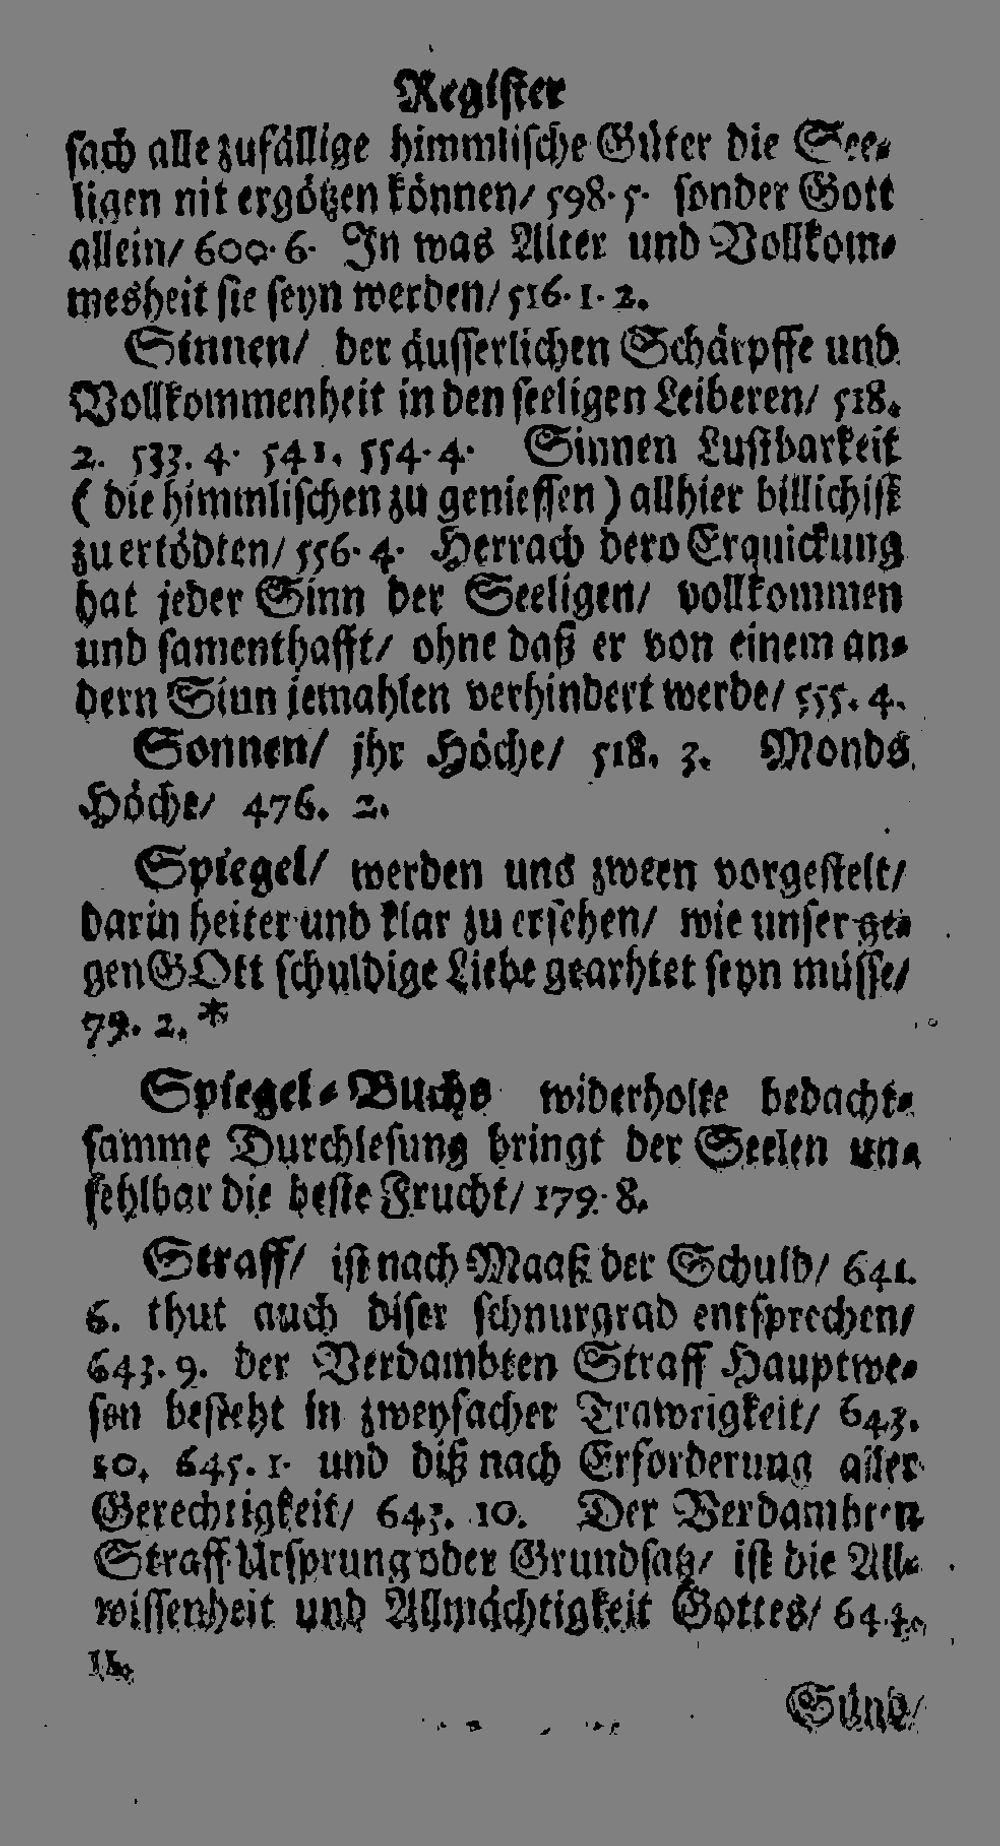 Register
sach alle zufällige himmlische Güter die See-
ligen nit ergötzen können/ 598. 5. sonder Gott
allein/ 600. 6. In was Alter und Vollkom-
mesheit sie seyn werden/ 516. 1. 2.
Sinnen/ der äusserlichen Schärpffe und
Vollkommenheit in den seeligen Leiberen/ 518.
2. 533. 4. 541. 554. 4. Sinnen Lustbarkeit
( die himmlischen zu geniessen ) allhier billichist
zu ertödten/ 556. 4. Herrach dero Erquickung
hat jeder Sinn der Seeligen/ vollkommen
und samenthafft/ ohne daß er von einem an-
dern Sinn jemahlen verhindert werde/ 555. 4.
Sonnen/ jhr Höche/ 518. 3. Monds
Höche/ 476. 2.
Spiegel/ werden uns zween vorgestelt/
darin heiter und klar zu ersehen/ wie unser ge-
gen GOtt schuldige Liebe gearhtet seyn müsse/
79. 2. *
Spiegel-Buchs widerholte bedacht-
samme Durchlesung bringt der Seelen un-
fehlbar die beste Frucht/ 179. 8.
Straff/ ist nach Maaß der Schuld/ 641.
6. thut auch diser schnurgrad entsprechen/
643. 9. der Verdambten Straff Hauptwe-
sen besteht in zweyfacher Trawrigkeit/ 643.
10. 645. 1. und diß nach Erforderung aller
Gerechtigkeit/ 643. 10. Der Verdambten
Straff Ursprung oder Grundsatz/ ist die All-
wissenheit und Allmächtigkeit Gottes/ 644.
11.
Sünd/